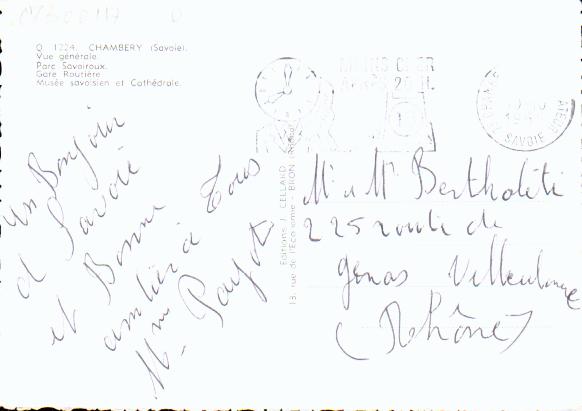 Q 1224. CHAMBERY (Savoie).
Vue générale.
Parc Savoiroux.
Gare Routière
Musée savoisien et Cathédrale.
MOINS CHER
APRÈS 20 H.
SAVOIE
un Bonjour
d Savoie
et Bonne
amitié à Tous
M. Payot
Editions J. CELLARD
13, rue de l'Economie - BRON (Rhône)
Mr et Me Bertholeti
225 route de
genas Villeurbanne
(Rhône)